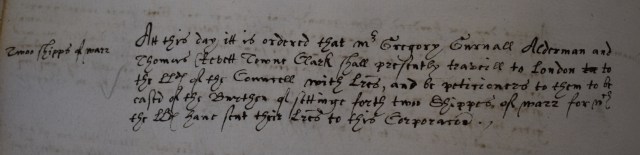 Twoo shipps of warr
Att this day itt is ordered that mr Gregory Gurnall Alderman and
Thomas Rebett Towne Clark shall presently travaill to London to
the LLds of the Councell with Lres, and be peticioners to them to be
easd of the Burthen of settinge forth two Shippes of warr for wch
the LLds have sent their Lres to this Corporacon .,